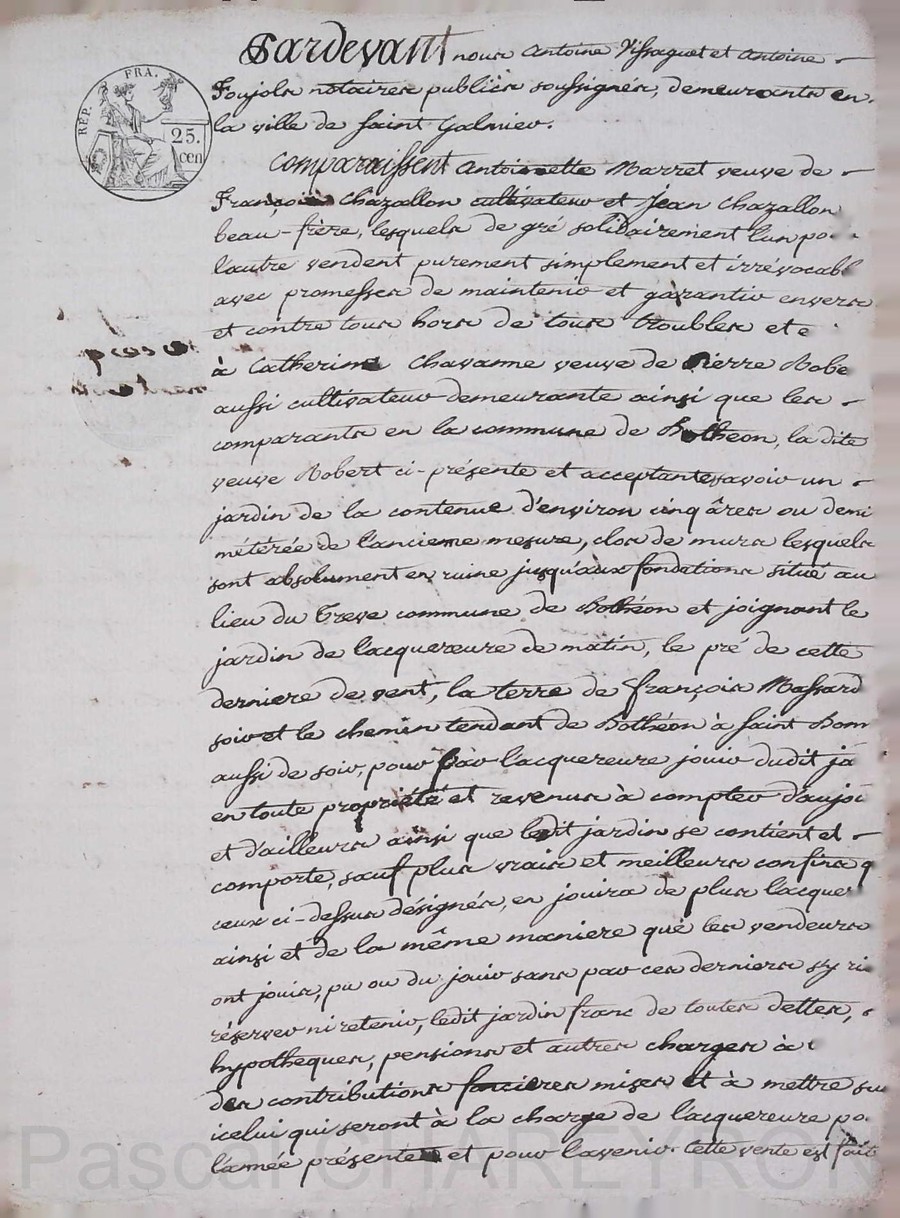 RÉP. FRA.
25.
cen
Pardevant nous Antoine Vissaguet et Antoine
Poujols notaires publics soussignés, demeurants en
la ville de saint Galmier.
Comparaissent Antoinette Marret veuve de
François Chazallon cultivateur et Jean Chazallon
beau-frère, lesquels de gré solidairement l'un po
l'autre vendent purement simplement et irrévocabl
avec promesses de maintenir et garantir envers
et contre tous hors de tous troubles et e
à Catherine Chavanne veuve de Pierre Robe
aussi cultivateur demeurante ainsi que les
comparants en la commune de Bothéon, la dite
veuve Robert ci-présente et acceptante savoir un
jardin de la contenue d'environ cinq âres ou demi
météree de l'ancienne mesure, clos de murs lesquels
sont absolument en ruine jusqu'aux fondations situé au
lieu du Treve commune de Bothéon et joignant le
jardin de l'acquereure de matin, le pré de cette
derniere de vent, la terre de françois Massard
soir et le chemin tendant de Bothéon à saint Bom
aussi de soir, pour par l'acquereure jouir dudit ja
en toute propriété et revenus à compter d'aujo
et d'ailleurs ainsi que ledit jardin se contient et
comporte, sauf plus vrais et meilleurs confins q
ceux ci-dessus désignés, en jouira de plus l'acque
ainsi et de la même maniere que les vendeurs
ont jouis, pu ou du jouir sans par ces derniers s'y ri
réserver ni retenir, ledit jardin franc de toutes dettes,
hypotheques, pensions et autres charges à
des contributions foncieres mises et à mettre su
icelui qui seront à la charge de l'acquereure po
l'année présente et pour l'avenir. Cette vente est fait
Pascal CHAREYRON